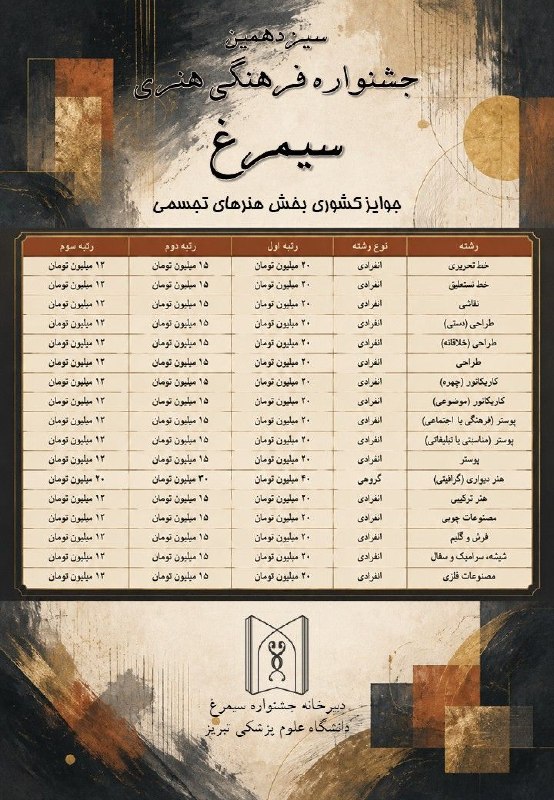 سیزدهمین
جشنواره فرهنگی هنری
سیمرغ
جوایز کشوری بخش هنرهای تجسمی
رشته نوع رشته رتبه اول رتبه دوم رتبه سوم
خط تحریری انفرادی ۲۰ میلیون تومان ۱۵ میلیون تومان ۱۲ میلیون تومان
خط نستعلیق انفرادی ۲۰ میلیون تومان ۱۵ میلیون تومان ۱۲ میلیون تومان
نقاشی انفرادی ۲۰ میلیون تومان ۱۵ میلیون تومان ۱۲ میلیون تومان
طراحی (دستی) انفرادی ۲۰ میلیون تومان ۱۵ میلیون تومان ۱۲ میلیون تومان
طراحی (خلاقانه) انفرادی ۲۰ میلیون تومان ۱۵ میلیون تومان ۱۲ میلیون تومان
طراحی انفرادی ۲۰ میلیون تومان ۱۵ میلیون تومان ۱۲ میلیون تومان
کاریکاتور (چهره) انفرادی ۲۰ میلیون تومان ۱۵ میلیون تومان ۱۲ میلیون تومان
کاریکاتور (موضوعی) انفرادی ۲۰ میلیون تومان ۱۵ میلیون تومان ۱۲ میلیون تومان
پوستر (فرهنگی یا اجتماعی) انفرادی ۲۰ میلیون تومان ۱۵ میلیون تومان ۱۲ میلیون تومان
پوستر (مناسبتی یا تبلیغاتی) انفرادی ۲۰ میلیون تومان ۱۵ میلیون تومان ۱۲ میلیون تومان
پوستر انفرادی ۲۰ میلیون تومان ۱۵ میلیون تومان ۱۲ میلیون تومان
هنر دیواری (گرافیتی) گروهی ۴۰ میلیون تومان ۳۰ میلیون تومان ۲۰ میلیون تومان
هنر ترکیبی انفرادی ۲۰ میلیون تومان ۱۵ میلیون تومان ۱۲ میلیون تومان
مصنوعات چوبی انفرادی ۲۰ میلیون تومان ۱۵ میلیون تومان ۱۲ میلیون تومان
فرش و گلیم انفرادی ۲۰ میلیون تومان ۱۵ میلیون تومان ۱۲ میلیون تومان
شیشه، سرامیک و سفال انفرادی ۲۰ میلیون تومان ۱۵ میلیون تومان ۱۲ میلیون تومان
مصنوعات فلزی انفرادی ۲۰ میلیون تومان ۱۵ میلیون تومان ۱۲ میلیون تومان
دبیرخانه جشنواره سیمرغ
دانشگاه علوم پزشکی تبریز